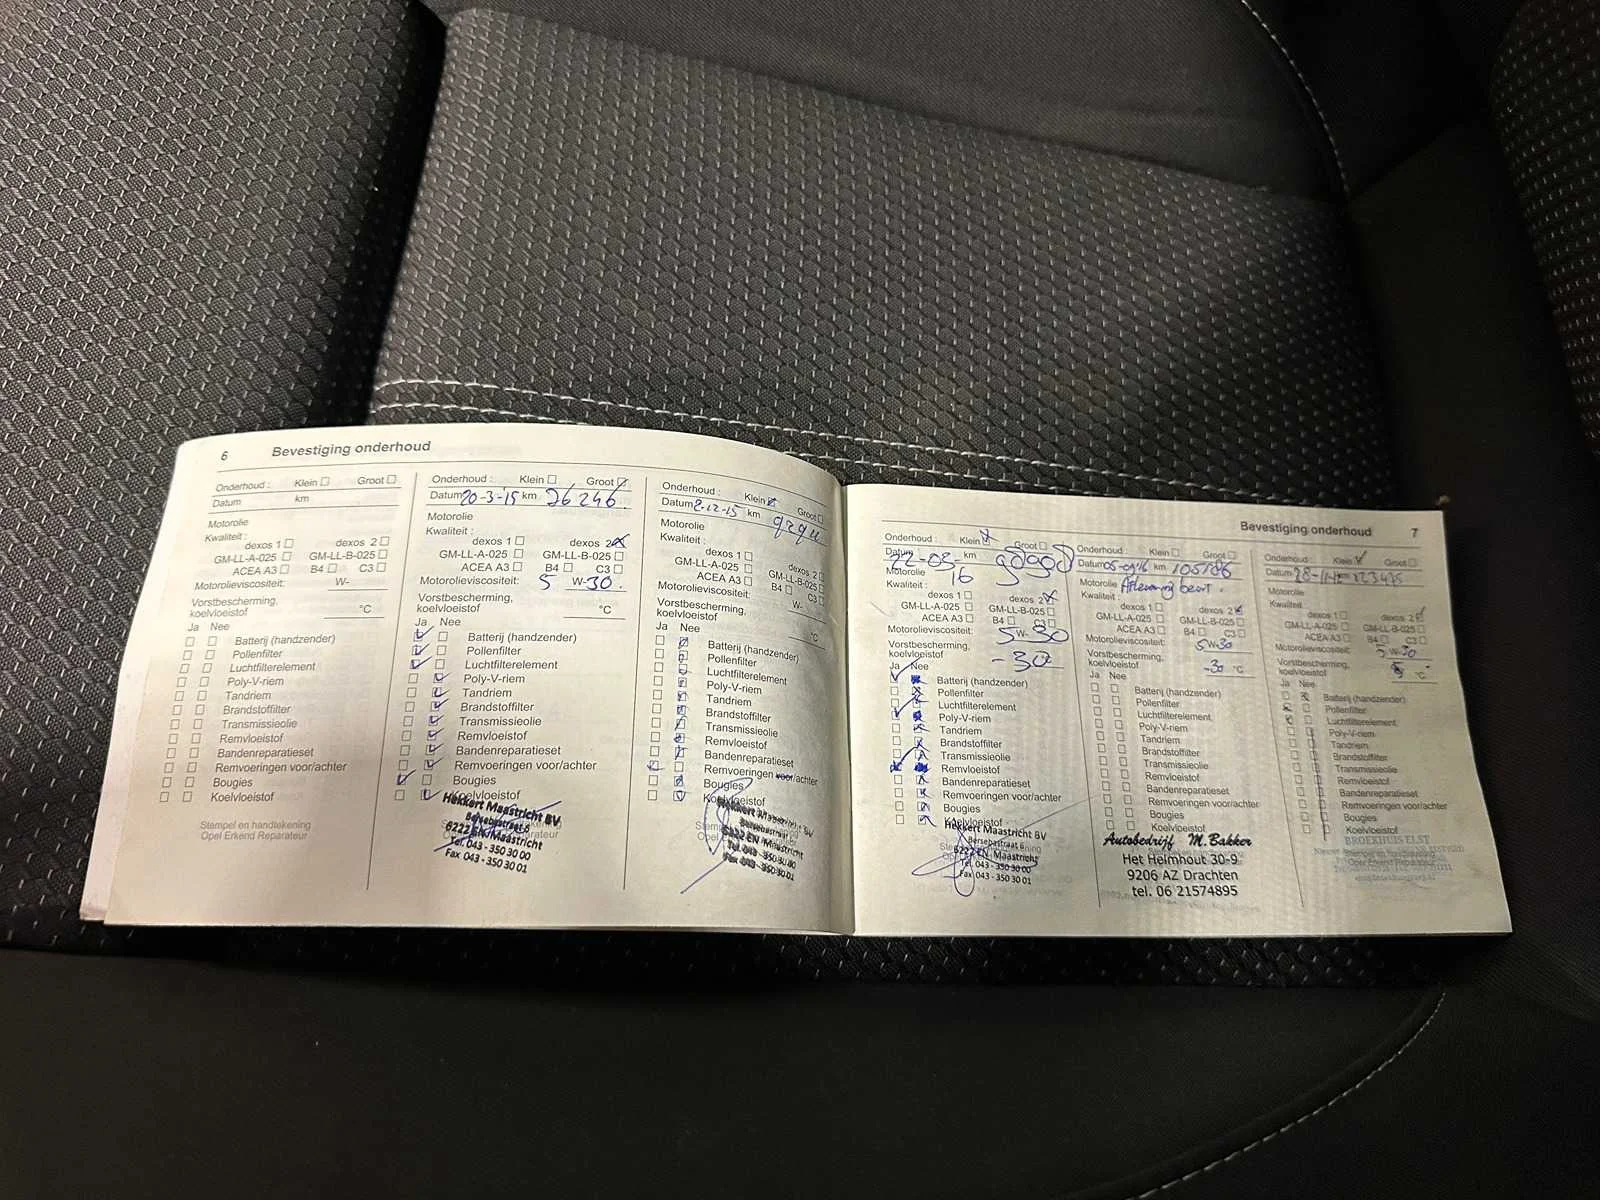 6 Bevestiging onderhoud
Onderhoud : Klein Groot
Datum km
Motorolie
Kwaliteit :
dexos 1 dexos 2
GM-LL-A-025 GM-LL-B-025
ACEA A3 B4 C3
Motorolieviscositeit: W-
Vorstbescherming,
koelvloeistof °C
Ja Nee
Batterij (handzender)
Pollenfilter
Luchtfilterelement
Poly-V-riem
Tandriem
Brandstoffilter
Transmissieolie
Remvloeistof
Bandenreparatieset
Remvoeringen voor/achter
Bougies
Koelvloeistof
Stempel en handtekening
Opel Erkend Reparateur
Onderhoud : Klein Groot
Datum 20-3-'15 km 76246
Motorolie
Kwaliteit :
dexos 1 dexos 2
GM-LL-A-025 GM-LL-B-025
ACEA A3 B4 C3
Motorolieviscositeit: 5 W-30
Vorstbescherming,
koelvloeistof °C
Ja Nee
Batterij (handzender)
Pollenfilter
Luchtfilterelement
Poly-V-riem
Tandriem
Brandstoffilter
Transmissieolie
Remvloeistof
Bandenreparatieset
Remvoeringen voor/achter
Bougies
Koelvloeistof
Hekkert Maastricht BV
Bersebastraat 6
6222 EN Maastricht
Tel. 043 - 350 30 00
Fax 043 - 350 30 01
Onderhoud : Klein Groot
Datum 2-12-15 km
Motorolie
Kwaliteit :
dexos 1 dexos 2
GM-LL-A-025 GM-LL-B-025
ACEA A3 B4 C3
Motorolieviscositeit: W-
Vorstbescherming,
koelvloeistof °C
Ja Nee
Batterij (handzender)
Pollenfilter
Luchtfilterelement
Poly-V-riem
Tandriem
Brandstoffilter
Transmissieolie
Remvloeistof
Bandenreparatieset
Remvoeringen voor/achter
Bougies
Koelvloeistof
Hekkert Maastricht BV
Bersebastraat 6
6222 EN Maastricht
Tel. 043 - 350 30 00
Fax 043 - 350 30 01
Bevestiging onderhoud 7
Onderhoud : Klein Groot
Datum 22-03-16 km
Motorolie
Kwaliteit :
dexos 1 dexos 2
GM-LL-A-025 GM-LL-B-025
ACEA A3 B4 C3
Motorolieviscositeit: 5 W-30
Vorstbescherming,
koelvloeistof -30
Ja Nee
Batterij (handzender)
Pollenfilter
Luchtfilterelement
Poly-V-riem
Tandriem
Brandstoffilter
Transmissieolie
Remvloeistof
Bandenreparatieset
Remvoeringen voor/achter
Bougies
Koelvloeistof
Hekkert Maastricht BV
Bersebastraat 6
6222 EN Maastricht
Tel. 043 - 350 30 00
Fax 043 - 350 30 01
Onderhoud : Klein Groot
Datum 05-09'16 km 105786
Motorolie Aflevering beurt.
Kwaliteit :
dexos 1 dexos 2
GM-LL-A-025 GM-LL-B-025
ACEA A3 B4 C3
Motorolieviscositeit: 5 W-30
Vorstbescherming,
koelvloeistof -30 °C
Ja Nee
Batterij (handzender)
Pollenfilter
Luchtfilterelement
Poly-V-riem
Tandriem
Brandstoffilter
Transmissieolie
Remvloeistof
Bandenreparatieset
Remvoeringen voor/achter
Bougies
Koelvloeistof
Autobedrijf M. Bakker
Het Helmhout 30-9
9206 AZ Drachten
tel. 06 21574895
Onderhoud : Klein Groot
Datum km 123475
Motorolie
Kwaliteit
dexos 1 dexos 2
GM-LL-A-025 GM-LL-B-025
ACEA A3 B4 C3
Motorolieviscositeit: 5 W-30
Vorstbescherming,
koelvloeistof °C
Ja Nee
Batterij (handzender)
Pollenfilter
Luchtfilterelement
Poly-V-riem
Tandriem
Brandstoffilter
Transmissieolie
Remvloeistof
Bandenreparatieset
Remvoeringen voor/achter
Bougies
Koelvloeistof
BROEKHUIS ELST